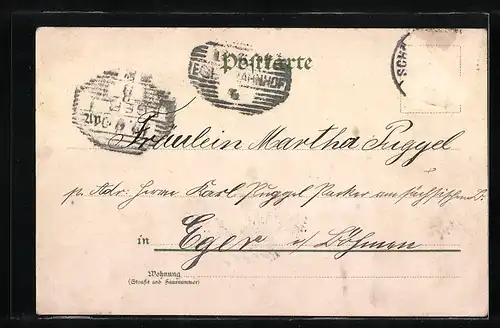 Postkarte
BAHNHOF
SCH
An
Fräulein Martha Puggel
p. Adr: Herrn Karl Puggel Packer am sächsischen
in Eger i/ Böhmen
Wohnung
(Straße und Hausnummer)